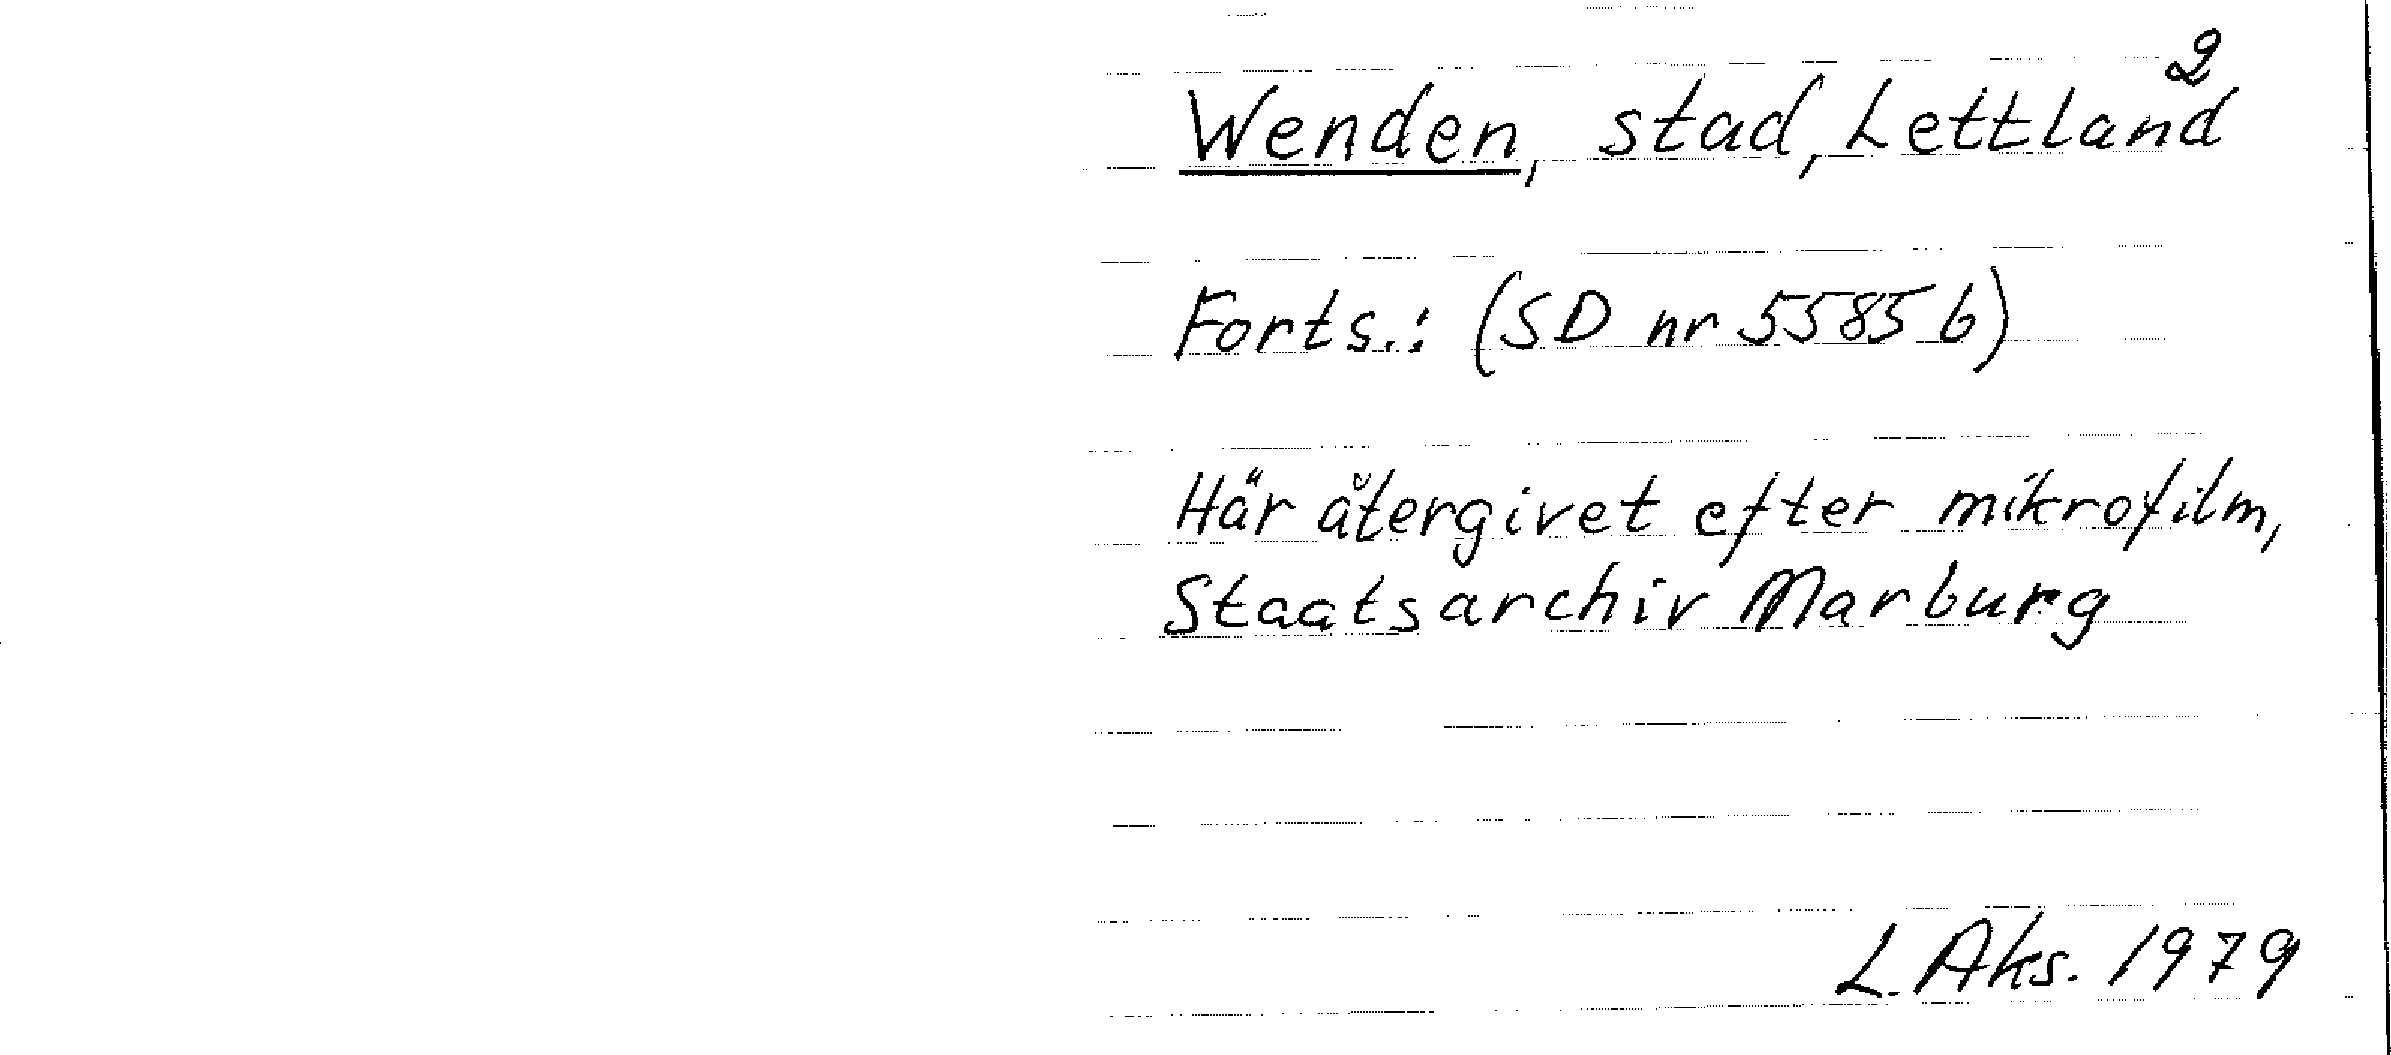 2
Wenden, stad, Lettland
Forts.: (SD nr 5585 b)
Här återgivet efter mikrofilm,
Staatsarchiv Marburg
L. Aks. 1979